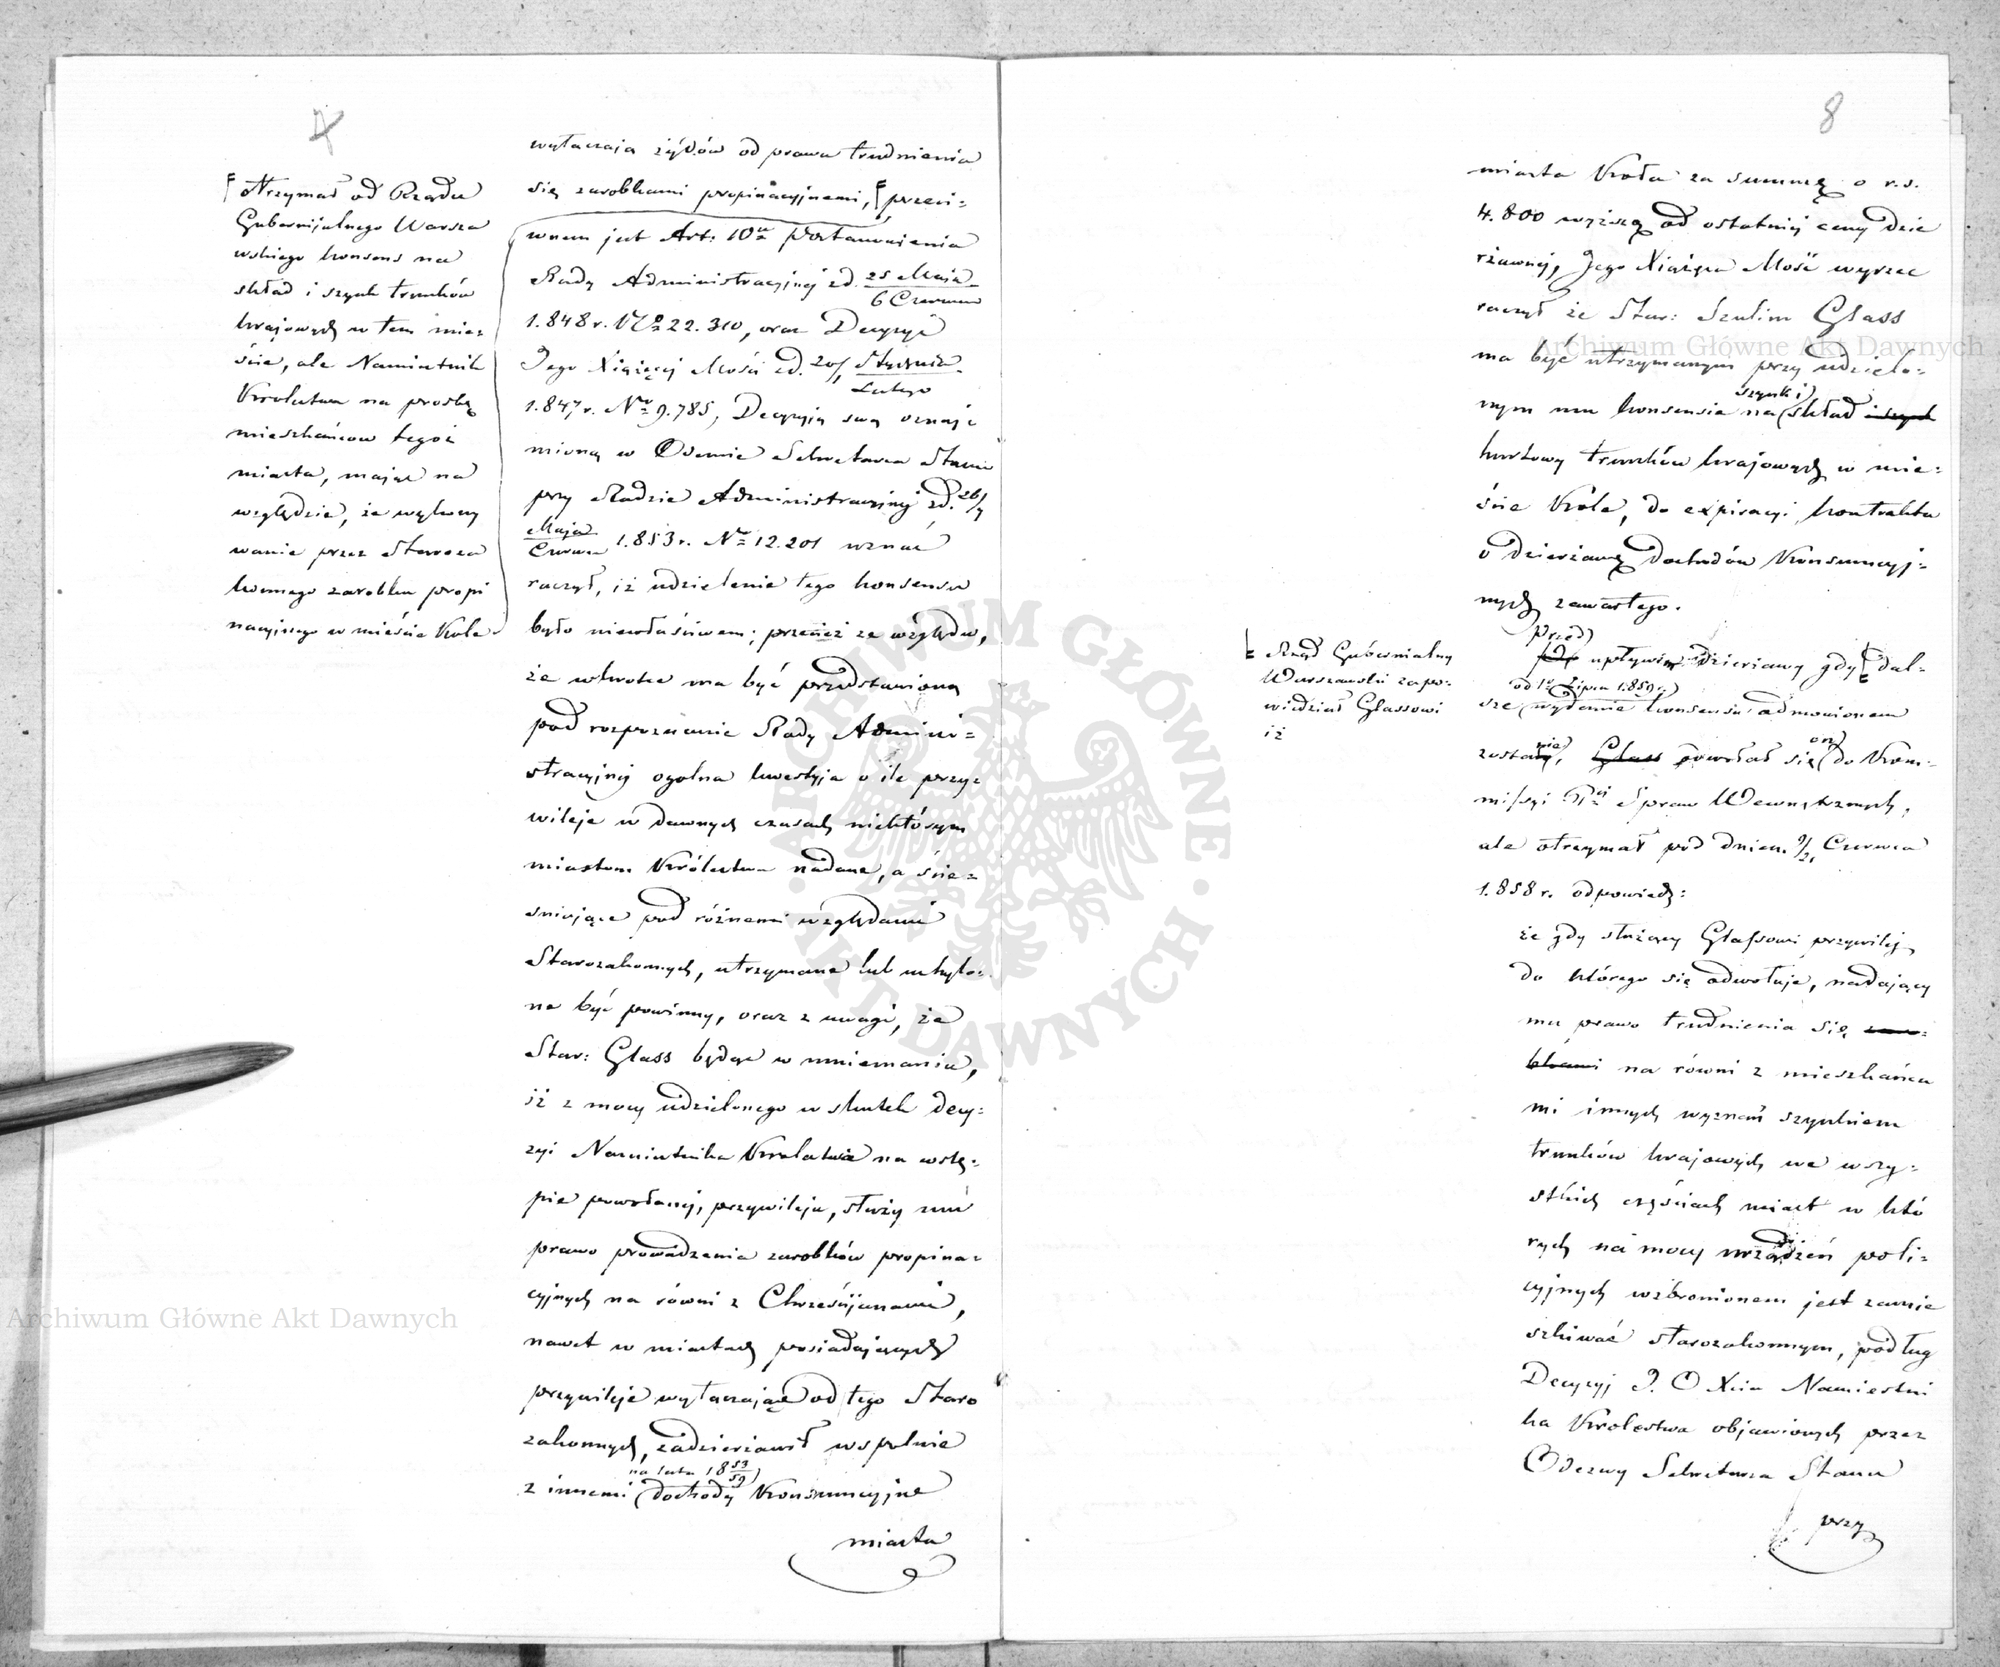 4
Otrzymał od Rządu
Gubernijalnego Warsza
wskiego konsens na
skład i szynk trunków
krajowych w tem mie-
ście, ale Namiestnik
Królestwa na prośbę
mieszkańców tegoż
miasta, mając na
względzie, że wykony
wanie przez Staroza
konnego zarobku propi
nacyjnego w mieście Kole
wyłaczają żydów od prawa trudnienia
się zarobkami propinacyjnemi, przeci-
wnem jest Art: 10u Postanowienia
Rady Administracyjnej z d. 25 Maja
6 Czerwca
1.848 r. No 22.310, oraz Decyzyi
Jego Xiążęcej Mości z d. 20/1 Stycznia
Lutego
1.847 r. Nr 9.785, Decyzyją swą oznaj
mioną w Odezwie Sekretarza Stanu
przy Radzie Administracyjnej z d. 26/7
Maja
Czerwca 1.853 r. Nr 12.201 uznać
raczył, iż udzielenie tego konsensu
było niewłaściwem; przecież ze względu,
że wkrótce ma być przedstawioną
pod rozpoznanie Rady Admini-
stracyjnej ogólna kwestyja o ile przy-
wileje w dawnych czasach niektórym
miastom Królestwa nadane, a ście-
śniające pod różnemi względami
Starozakonnych, utrzymane lub uchylo-
ne być powinny, oraz z uwagi, że
Star: Glass będąc w mniemaniu,
iż z mocy udzielonego w skutek decy-
zyi Namiestnika Królestwa na wstę-
pie powołanej, przywileju, służy mu
prawo prowadzenia zarobków propina-
cyjnych na równi z Chrześcijanami,
nawet w miastach posiadających
przywileje wyłaczające od tego Staro
zakonnych, zadzierżawił wspólnie
na lata 18 53/59
z innemi dochody Konsumcyjne
miasta
8
miasta Koła za summę o r.s.
4.800 wyższą od ostatniej ceny dzie
rżawnej, Jego Xiążęca Mość wyrzec
raczył że Star: Szulim Glass
ma być utrzymanym przy udzielo-
szynk i
nym mu konsensie na skład i szynk
hurtowy trunków krajowych w mie-
ście Kole, do expiracyi kontraktu
o dzierżawę dochodów Konsumcyj-
nych zawartego.
Przed
upływem dzierżawy gdy dal-
od 1o Lipca 1.859 r.
sze wydanie konsensu odmówionem
nie on
zosta, Glass powołał się do Kom-
missyi Rej Spraw Wewnętrznych,
ale otrzymał pod dniem 9/21 Czerwca
1.858 r. odpowiedź:
Rząd Gubernialny
Warszawski zapo-
wiedział Glassowi
iż
że gdy służący Glassowi przywilej
do którego się odwołuje, nadający
mu prawo trudnienia się zaro-
bkami na równi z mieszkańca
mi innych wyznań szynkiem
trunków krajowych we wszy-
stkich częściach miast w któ
rych na mocy urządzeń poli-
cyjnych wzbronionem jest zamie
szkiwać starozakonnym, podług
Decyzyj J. O Xcia Namiestni
ka Królestwa objawionych przez
Odezwy Sekretarza Stanu
przy
Archiwum Główne Akt Dawnych
Archiwum Główne Akt Dawnych
ARCHIWUM GŁÓWNE · AKT DAWNYCH ·